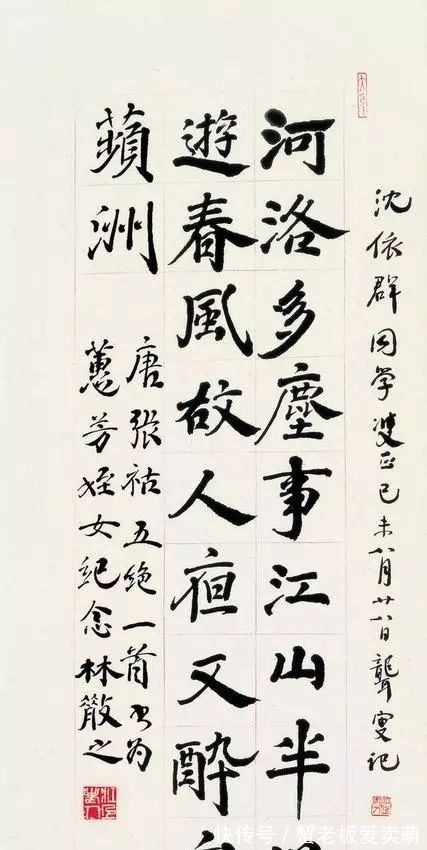 沈依群同学雙正己未八月廿八日聾叟记
河洛多塵事江山半
遊春風故人夜又醉
蘋洲
唐張祜五绝一首书为
蕙芳姪女纪念林散之
快传号 / 蟹老板爱卖萌